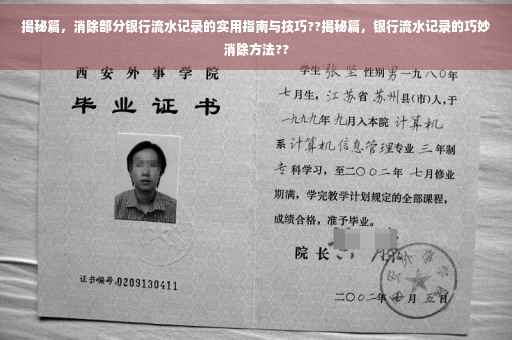 揭秘篇，消除部分银行流水记录的实用指南与技巧??揭秘篇，银行流水记录的巧妙
消除方法??
西安外事学院
毕业证书
证书编号:0209130411
学生 张坚 性别 男 一九八〇年
七月生，江苏省 苏州县(市)人,于
一九九九年 九月入本院 计算机
系 计算机信息管理专业 三年制
专科学习，至二〇〇二年 七月修业
期满，学完教学计划规定的全部课程，
成绩合格，准予毕业。
院长
二〇〇二年 七月 五日